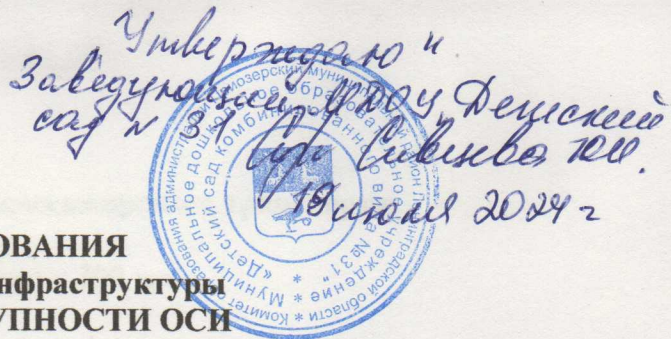 Утверждаю"
Заведующий МДОУ Детский
сад № 31 Сивцева Ю.И.
19 июля 2024 г
ОВАНИЯ
нфраструктуры
УПНОСТИ ОСИ
Комитет образования администрации Приозерский муниципальный район Ленинградской области *
Муниципальное дошкольное образовательное учреждение *
«Детский сад комбинированного вида №31" *